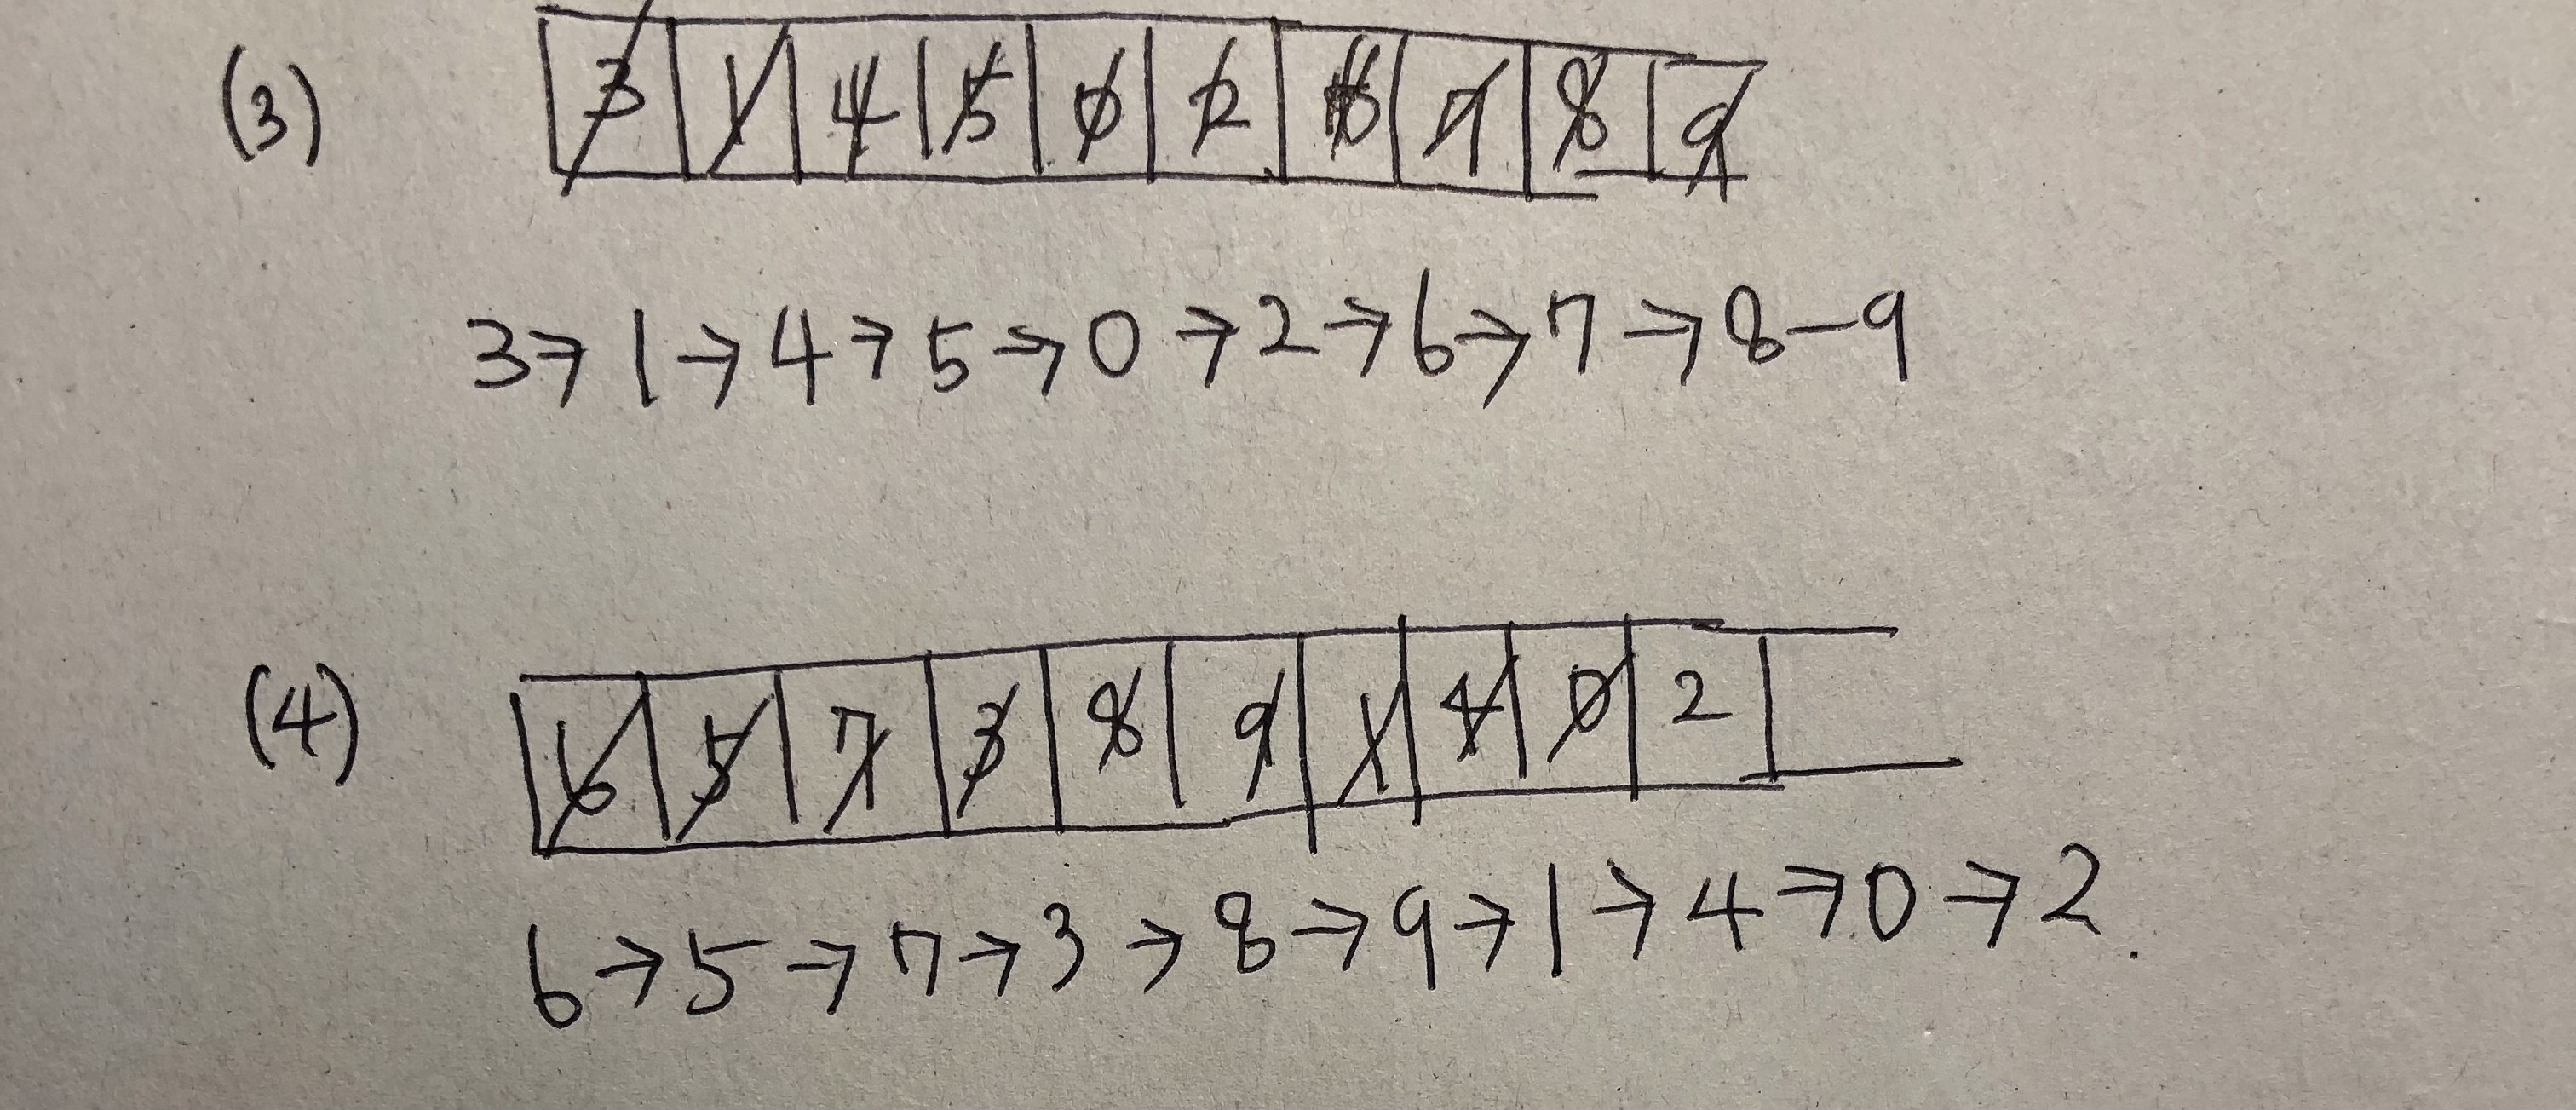 (3) 3 1 4 5 0 2 6 7 8 9
3→1→4→5→0→2→6→7→8—9
(4) 6 5 7 3 8 9 1 4 0 2
6→5→7→3→8→9→1→4→0→2.